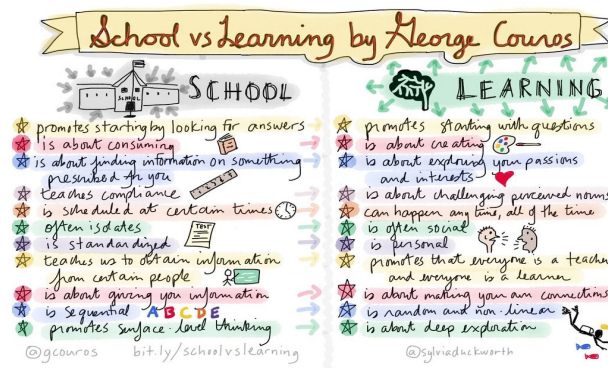 School vs Learning by George Couros
SCHOOL
SCHOOL
promotes starting by looking for answers
is about consuming
is about finding information on something
prescribed for you
teaches compliance
is scheduled at certain times
often isolates
TEST
is standardized
teaches us to obtain information
from certain people
is about giving you information
is sequential ABCDE
promotes surface-level thinking
@gcouros bit.ly/schoolvslearning
LEARNING
promotes starting with questions
is about creating
is about exploring your passions
and interests
is about challenging perceived norms
can happen any time, all of the time
is often social
is personal
promotes that everyone is a teacher
and everyone is a learner
is about making your own connections
is random and non-linear
is about deep exploration
@sylviaduckworth